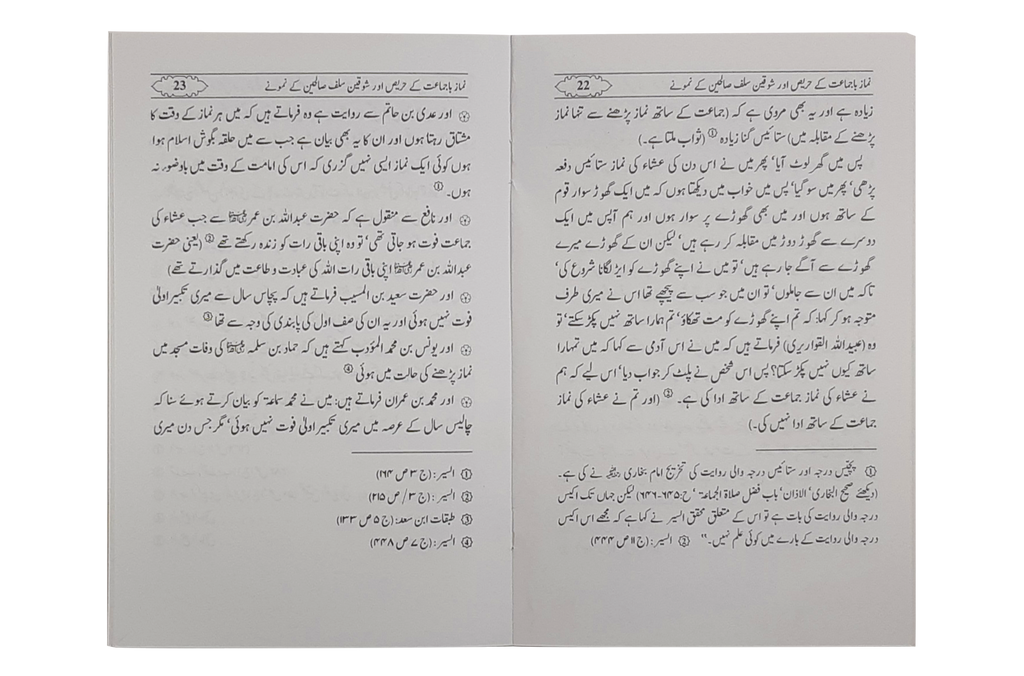 نماز باجماعت کے حریص اور شوقین سلف صالحین کے نمونے 22
زیادہ ہے اور یہ بھی مروی ہے کہ (جماعت کے ساتھ نماز پڑھنے سے تنہا نماز
پڑھنے کے مقابلہ میں) ستائیس گنا زیادہ ① (ثواب ملتا ہے۔)
پس میں گھر لوٹ آیا' پھر میں نے اس دن کی عشاء کی نماز ستائیس دفعہ
پڑھی' پھر میں سو گیا' پس میں خواب میں دیکھتا ہوں کہ میں ایک گھوڑ سوار قوم
کے ساتھ ہوں اور میں بھی گھوڑے پر سوار ہوں اور ہم آپس میں ایک
دوسرے سے گھوڑ دوڑ میں مقابلہ کر رہے ہیں' لیکن ان کے گھوڑے میرے
گھوڑے سے آگے جا رہے ہیں' تو میں نے اپنے گھوڑے کو ایڑ لگانا شروع کی'
تاکہ میں ان سے جاملوں' تو ان میں جو سب سے پیچھے تھا اس نے میری طرف
متوجہ ہو کر کہا: کہ تم اپنے گھوڑے کو مت تھکاؤ' تم ہمارا ساتھ نہیں پکڑ سکتے' تو
وہ (عبیداللہ القواریری) فرماتے ہیں کہ میں نے اس آدمی سے کہا کہ میں تمہارا
ساتھ کیوں نہیں پکڑ سکتا؟ پس اس شخص نے پلٹ کر جواب دیا' اس لیے کہ ہم
نے عشاء کی نماز جماعت کے ساتھ ادا کی ہے۔ ② (اور تم نے عشاء کی نماز
جماعت کے ساتھ ادا نہیں کی۔)
① پچیس درجہ اور ستائیس درجہ والی روایت کی تخریج امام بخاری رحمہ اللہ نے کی ہے۔
(دیکھئے صحیح البخاری' الاذان' باب فضل صلاة الجماعة' ح: ۶۴۵-۶۴۶) لیکن جہاں تک اکیس
درجہ والی روایت کی بات ہے تو اس کے متعلق محقق السیر نے کہا ہے کہ مجھے اس اکیس
درجہ والی روایت کے بارے میں کوئی علم نہیں۔" ② السیر: (ج ۱۱ ص ۴۴۴)
نماز باجماعت کے حریص اور شوقین سلف صالحین کے نمونے 23
اور عدی بن حاتم سے روایت ہے وہ فرماتے ہیں کہ میں ہر نماز کے وقت کا
مشتاق رہتا ہوں اور ان کا یہ بھی بیان ہے جب سے میں حلقہ بگوش اسلام ہوا
ہوں کوئی ایک نماز ایسی نہیں گزری کہ اس کی امامت کے وقت میں باوضور نہ
ہوں۔ ①
اور نافع سے منقول ہے کہ حضرت عبداللہ بن عمر رضی اللہ عنہما سے جب عشاء کی
جماعت فوت ہو جاتی تھی' تو وہ اپنی باقی رات کو زندہ رکھتے تھے ② (یعنی حضرت
عبداللہ بن عمر رضی اللہ عنہما اپنی باقی رات اللہ کی عبادت و طاعت میں گذارتے تھے)
اور حضرت سعید بن المسیب فرماتے ہیں کہ پچاس سال سے میری تکبیر اولیٰ
فوت نہیں ہوئی اور یہ ان کی صف اول کی پابندی کی وجہ سے تھا ③
اور یونس بن محمد المؤدب کہتے ہیں کہ حماد بن سلمہ کی وفات مسجد میں
نماز پڑھنے کی حالت میں ہوئی ④
اور محمد بن عمران فرماتے ہیں: میں نے محمد سماعۃ کو بیان کرتے ہوئے سنا کہ
چالیس سال کے عرصہ میں میری تکبیر اولیٰ فوت نہیں ہوئی' مگر جس دن میری
① السیر: (ج ۳ ص ۱۶۴)
② السیر: (ج ۳/ ص ۲۱۵)
③ طبقات ابن سعد: (ج ۵ ص ۱۳۳)
④ السیر: (ج ۷ ص ۴۴۸)